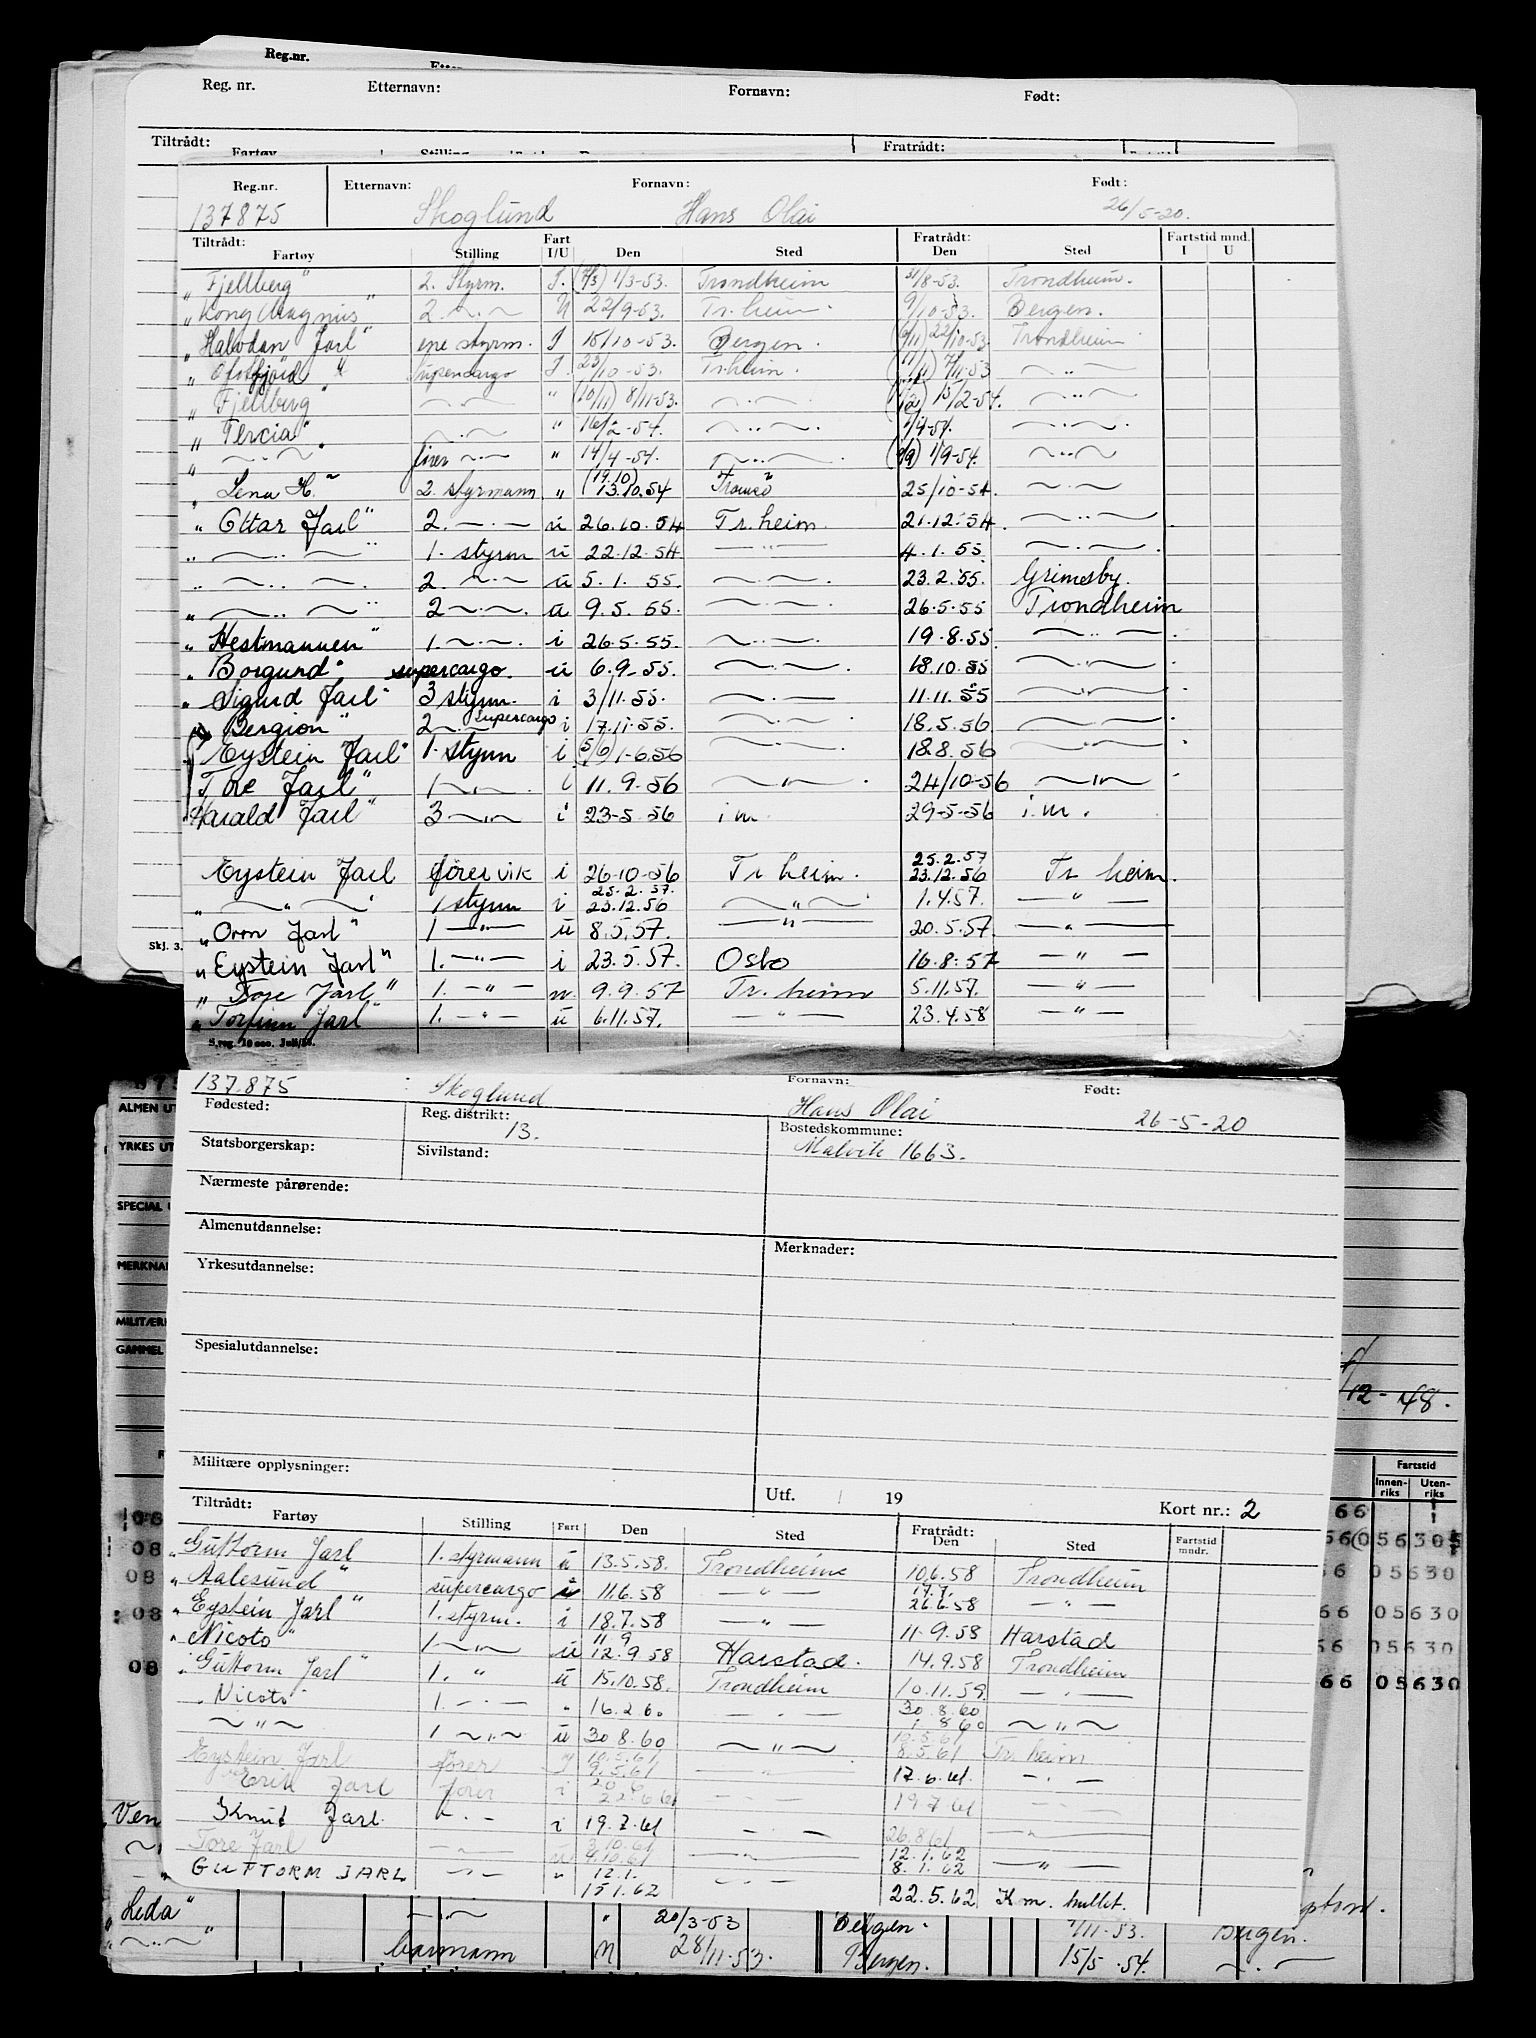 Reg.nr.
Reg. nr. Etternavn: Fornavn: Født:
Tiltrådt: Fratrådt:
Fartøy Stilling
Reg.nr. Etternavn: Fornavn: Født:
137875 Skoglund Hans Olai 26/5-20.
Tiltrådt: Fart Fratrådt: Fartstid mnd.
Fartøy Stilling I/U Den Sted Den Sted I U
"Fjellberg" 2. Styrm. I. 1/3-53. Trondheim 31/8-53. Trondheim.
"Kong Magnus" 2. ~.~ U 22/9-53. Tr.heim. 9/10-53. Bergen.
"Halvdan Jarl" ene styrm. I 15/10-53. Bergen. 22/10-53 Trondheim
"Ofotfjord" Supercargo I. 23/10-53. Tr.heim. 7/11-53 ~..~
"Fjellberg" ~.~ " (10/11) 8/11-53. ~.~ 15/2-54. ~..~
"Tercia" ~.~ " 16/2-54. ~..~ 1/4-54. ~.~
" ~.~ " fører ~.~ " 14/4-54. ~..~ 1/9-54. ~..~
"Lena H." 2. styrmann " (19.10) 13.10.54 Tromsø 25/10-54. ~.~
"Ottar Jarl" 2. —.— u 26.10.54 Tr.heim. 21.12.54. ~.~
" ~..~ " 1. styrm u 22.12.54 —"— 4.1.55 ~.~
" ~..~ 2. ~.~ u 5.1.55. ~.~ 23.2.55. Grimesby.
" ~..~ " 2 ~.~. u 9.5.55. ~.~ 26.5.55 Trondheim
"Hestmannen" 1. ~.~. i 26.5.55. ~.~ 19.8.55 ~..~
"Borgund" supercargo. u 6.9.55. ~.~. 18.10.55 ~.~
"Sigurd Jarl" 3 styrm. i 3/11.55. ~.~ 11.11.55 ~.~
"Bergion" 2 ~ supercargo i 17.11.55. ~.~ 18.5.56 ~.~
"Eystein Jarl" 1. styrm i (5/6) 1.6.56 ~.~. 18.8.56 ~"~
"Tore Jarl" 1 ~.~. i 11.9.56 ~"~. 24/10-56 ~"~
"Harald Jarl" 3 ~.~ i 23-5-56 i.m. 29-5-56 i.m.
25.2.57
Eystein Jarl fører vik i 26-10-56 Tr heim. 23.12.56 Tr heim.
25.2.57.
" ~"~ 1 styrm i 23.12.56 ~"~ 1.4.57. —"—
"Orm Jarl" 1 —"— u 8.5.57. —"— 20.5.57. —"—
"Eystein Jarl" 1. —"— i 23.5.57. Oslo 16.8.57 —"—
"Tore Jarl" 1. —"— u. 9.9.57 Tr. heim 5.11.57. —"—
"Torfinn Jarl" 1. —"— u 6.11.57. —"— 23.4.58 —"—
Skj. 3.
137.875 Skoglund Fornavn: Hans Olai Født: 26-5-20
Fødested: Reg. distrikt: 13. Bostedskommune: Malvik 1663.
Statsborgerskap: Sivilstand:
Nærmeste pårørende:
Almenutdannelse:
Merknader:
Yrkesutdannelse:
Spesialutdannelse:
Militære opplysninger:
Utf. 19 Kort nr.: 2
Tiltrådt: Fratrådt: Fartstid
Fartøy Stilling Fart Den Sted Den Sted mndr.
"Guttorm Jarl 1. styrmann u 13.5.58. Trondheim 10.6.58 Trondheim
"Aalesund" supercargo 11.6.58 —"— 26.6.58 —"—
"Eystein Jarl" 1. styrm. i 18.7.58 —"— 11-9.58 Harstad
11 9
"Nicoto" 1 ~"~ u 12.9.58 Harstad. 14.9.58 Trondheim
"Guttorm Jarl" 1. " u 15.10.58. Trondheim 10.11.59 —.—
"Nicoto" 1. —.— " 16.2.60 —.— 30.8.60 ~"~
~"~ 1 ~.~ u 30.8.60 ~"~ 8.5.61 Tr heim
Eystein Jarl fører 9.5.61 17.6.61 —.—
Erik Jarl fører i 22.6.61 —.— 19.7.61
Knut Jarl. —.— i 19.7.61 —.— 26.8.61
12.1.62
Tore Jarl u 8.1.62 —"—
GUTTORM JARL —.— " 12.1. 15 1.62 —.— 22.5.62 K m. hullet.
ALMEN UT
YRKES UT
SPECIAL U
MERKNAD
MILITÆR
GAMMEL
12-48.
Fartstid
Innenriks Utenriks
66
05630
66 05630
66 05630
66 05630
08
08
08
08
Ven
"Leda" —.— " 20/3-53 Bergen. 11.53. Bergen.
" ~..~ " baxmann N 28/11-53. Bergen. 15/5.54. ~.~